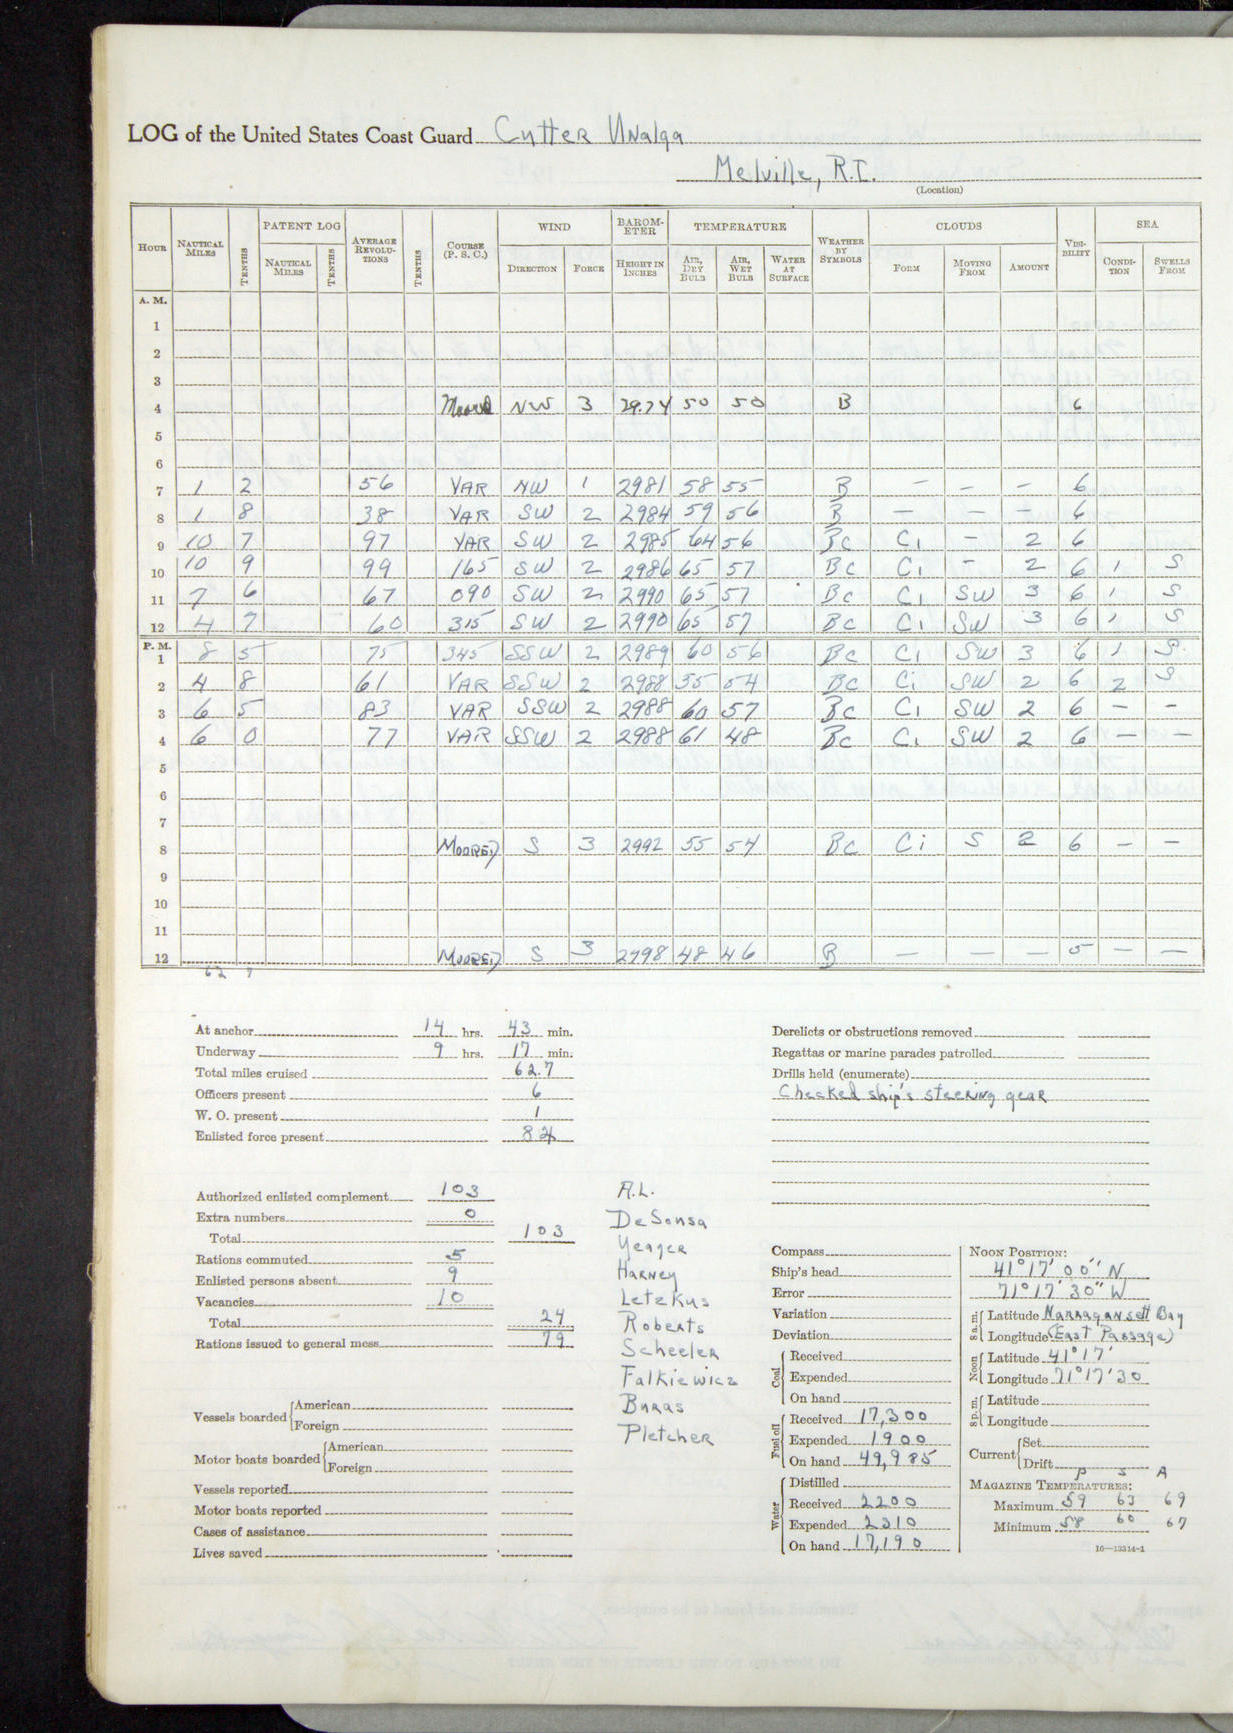 LOG of the United States Coast Guard Cutter Unalga
Melville, R.I.
(Location)
HOUR NAUTICAL MILES TENTHS PATENT LOG NAUTICAL MILES TENTHS AVERAGE REVOLUTIONS TENTHS COURSE (P. S. C.) WIND DIRECTION FORCE BAROMETER HEIGHT IN INCHES TEMPERATURE AIR, DRY BULB AIR, WET BULB WATER AT SURFACE WEATHER BY SYMBOLS CLOUDS FORM MOVING FROM AMOUNT VISIBILITY SEA CONDITION SWELLS FROM
A. M.
1
2
3
4 Moored NW 3 29.74 50 50 B 6
5
6
7 1 2 56 VAR NW 1 2981 58 55 B — — — 6
8 1 8 38 VAR SW 2 2984 59 56 B — — — 6
9 10 7 97 VAR SW 2 2985 64 56 Bc Ci — 2 6
10 10 9 99 165 SW 2 2986 65 57 Bc Ci — 2 6 1 S
11 7 6 67 090 SW 2 2990 65 57 Bc Ci SW 3 6 1 S
12 4 7 60 315 SW 2 2990 65 57 Bc Ci SW 3 6 1 S
P. M.
1 8 5 75 345 SSW 2 2989 60 56 Bc Ci SW 3 6 1 S
2 4 8 61 VAR SSW 2 2988 55 54 Bc Ci SW 2 6 2 S
3 6 5 83 VAR SSW 2 2988 60 57 Bc Ci SW 2 6 — —
4 6 0 77 VAR SSW 2 2988 61 48 Bc Ci SW 2 6 — —
5
6
7
8 MOORED S 3 2992 55 54 Bc Ci S 2 6 — —
9
10
11
12 MOORED S 3 2998 48 46 B — — — 5 — —
62 7
At anchor 14 hrs. 43 min.
Underway 9 hrs. 17 min.
Total miles cruised 62.7
Officers present 6
W. O. present 1
Enlisted force present 84
Derelicts or obstructions removed
Regattas or marine parades patrolled
Drills held (enumerate)
Checked ship's steering gear
Authorized enlisted complement 103
Extra numbers 0
Total 103
Rations commuted 5
Enlisted persons absent 9
Vacancies 10
Total 24
Rations issued to general mess 79
A.L.
DeSousa
Yeager
Harney
Letzkus
Roberts
Scheeler
Falkiewicz
Buras
Pletcher
Vessels boarded American
Foreign
Motor boats boarded American
Foreign
Vessels reported
Motor boats reported
Cases of assistance
Lives saved
Compass
Ship's head
Error
Variation
Deviation
Coal Received
Expended
On hand
Fuel oil Received 17,300
Expended 1900
On hand 49,985
Water Distilled
Received 2200
Expended 2310
On hand 17,190
NOON POSITION:
41° 17' 00" N
71° 17' 30" W
8 a. m. Latitude Narragansett Bay
Longitude (East Passage)
Noon Latitude 41° 17'
Longitude 71° 17' 30
8 p. m. Latitude
Longitude
Current Set
Drift
P S A
MAGAZINE TEMPERATURES:
Maximum 59 63 69
Minimum 58 60 67
16—13314-1